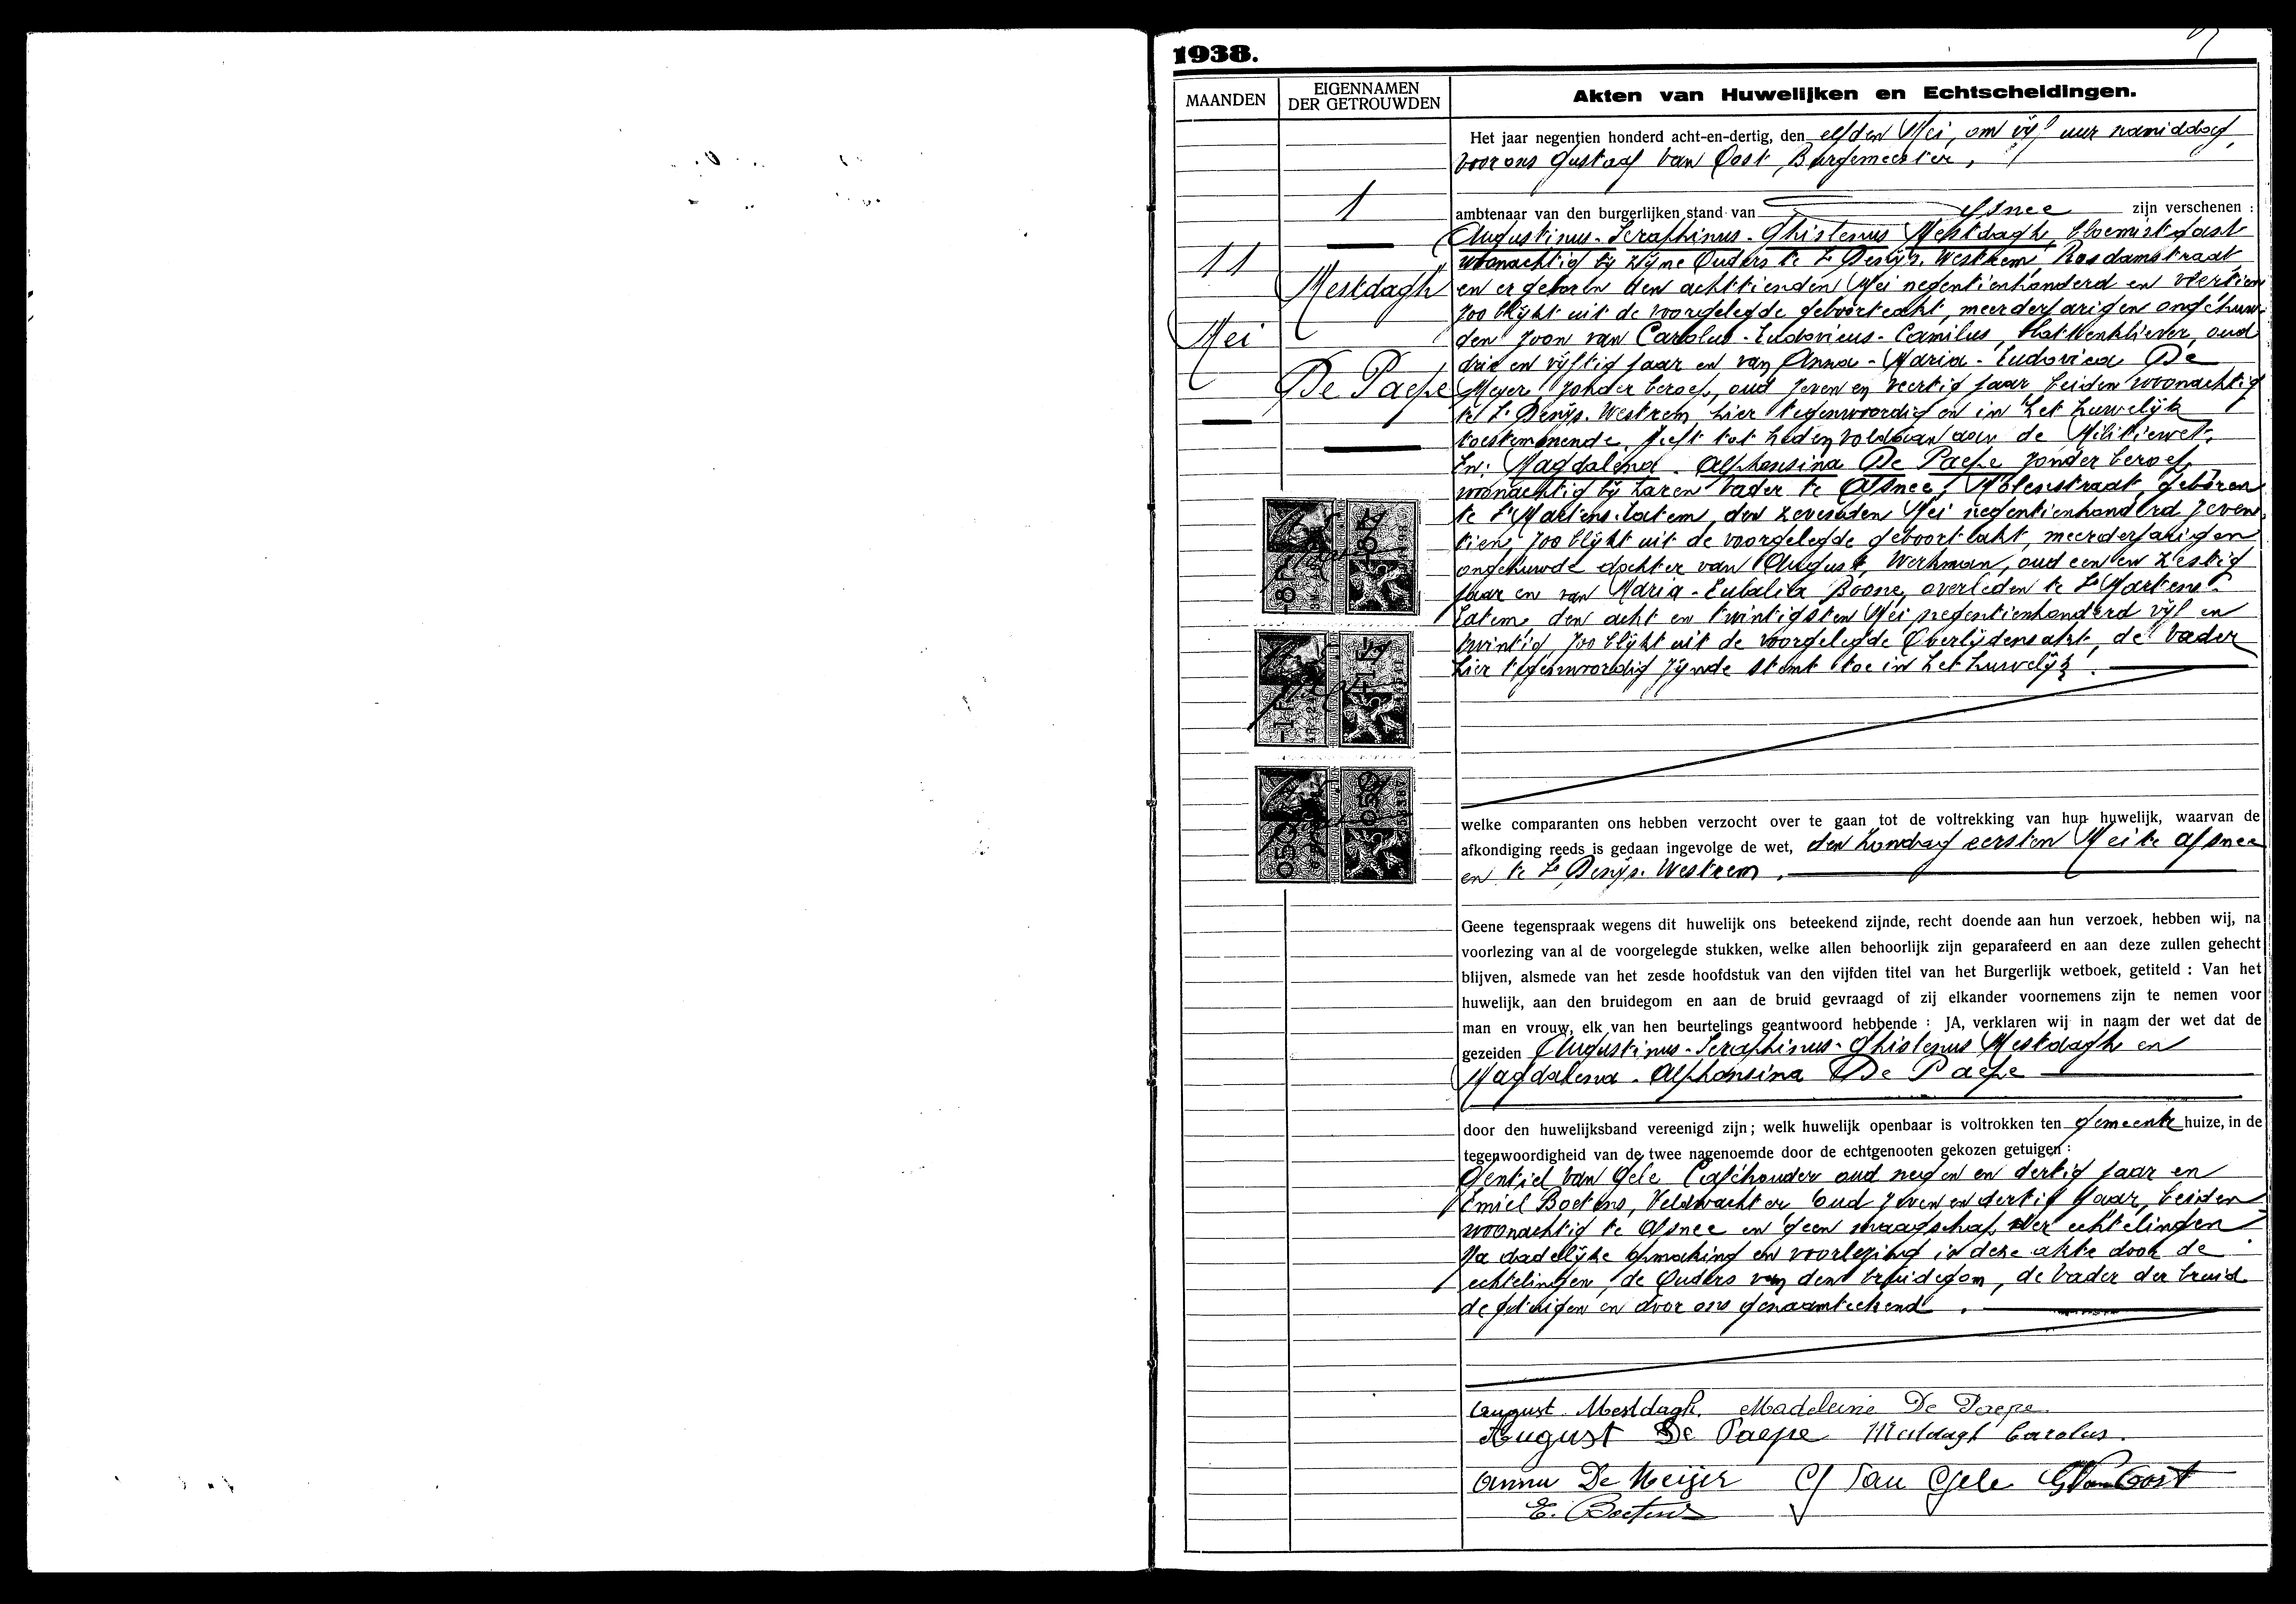 1938.
MAANDEN
EIGENNAMEN
DER GETROUWDEN
Akten van Huwelijken en Echtscheidingen.
1
11
Mei
Mestdagh
De Paepe
Het jaar negentien honderd acht-en-dertig, den elfden Mei, om vijf uur namiddag,
voor ons Gustaaf Van Oost, Burgemeester,
ambtenaar van den burgerlijken stand van Afsnee zijn verschenen :
Augustinus-Seraphinus-Ghislenus Mestdagh, bloemistgast
woonachtig bij zijne Ouders te St Denijs-Westrem, Rosdamstraat
en er geboren den achttienden Mei negentienhonderd en veertien
zoo blijkt uit de voorgelegde geboorteakt, meerderjarigen ongehuw-
den zoon van Carolus-Ludovicus-Camilus, oud
drie en vijftig jaar en van Anna-Maria-Ludovica De
Meyer, zonder beroep, oud zeven en veertig jaar beiden woonachtig
te St Denijs-Westrem, hier tegenwoordig en in het huwelijk
toestemmende, heeft tot heden voldaan aan de Militiewet.
En: Magdalena-Alphonsina De Paepe zonder beroep,
woonachtig bij haren vader te Afsnee, Molenstraat, geboren
te St Martens-Latem, den zevensten Mei negentienhonderd zeven-
tien, zoo blijkt uit de voorgelegde geboorteakt, meerderjarigen
ongehuwde dochter van August, Werkman, oud een en zestig
jaar en van Maria-Eulalia Boone, overleden te St Martens-
Latem, den acht en twintigsten Mei negentienhonderd vijf en
twintig, zoo blijkt uit de voorgelegde Overlijdensakt, de vader
hier tegenwoordig zijnde stemt toe in het huwelijk.
welke comparanten ons hebben verzocht over te gaan tot de voltrekking van hun huwelijk, waarvan de
afkondiging reeds is gedaan ingevolge de wet, den Zondag eersten Mei te Afsnee
en te St Denijs-Westrem.
Geene tegenspraak wegens dit huwelijk ons beteekend zijnde, recht doende aan hun verzoek, hebben wij, na
voorlezing van al de voorgelegde stukken, welke allen behoorlijk zijn geparafeerd en aan deze zullen gehecht
blijven, alsmede van het zesde hoofdstuk van den vijfden titel van het Burgerlijk wetboek, getiteld : Van het
huwelijk, aan den bruidegom en aan de bruid gevraagd of zij elkander voornemens zijn te nemen voor
man en vrouw, elk van hen beurtelings geantwoord hebbende : JA, verklaren wij in naam der wet dat de
gezeiden Augustinus-Seraphinus-Ghislenus Mestdagh en
Magdalena-Alphonsina De Paepe
door den huwelijksband vereenigd zijn ; welk huwelijk openbaar is voltrokken ten gemeente huize, in de
tegenwoordigheid van de twee nagenoemde door de echtgenooten gekozen getuigen :
Gentiel Van Gele Caféhouder oud negen en dertig jaar en
Emiel Boetens, Veldwachter oud zeven en dertig jaar, beiden
woonachtig te Afsnee en geen maagschap der echtelingen
Na dadelijke opmaking en voorlezing is deze akte door de
echtelingen, de Ouders van den bruidegom, de vader der bruid
de getuigen en door ons genaamteekend.
August Mestdagh. Madeleine De Paepe.
August De Paepe Mestdagh Carolus.
Anna De Meijer G Van Gele G Van Oost
E. Boetens